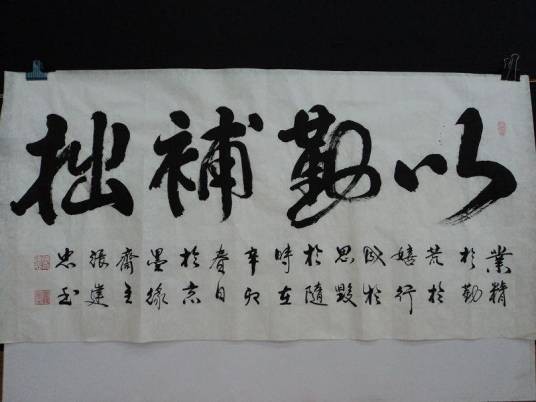 以勤補拙
業精
於勤
荒於
嬉行
成於
思毀
於隨
時在
辛卯
春日
於志
墨緣
齋主
張建
忠